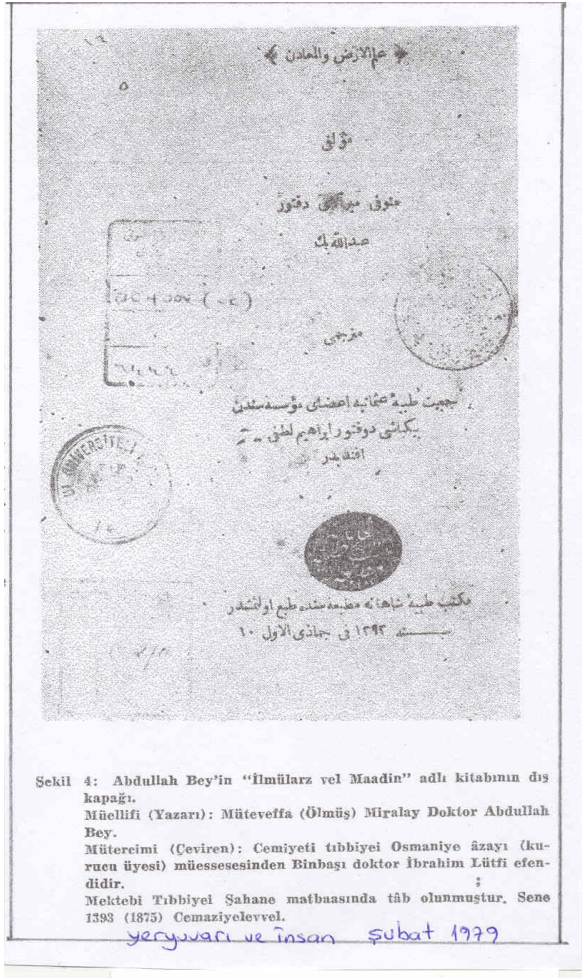 ﴿ علم الارض والمعادن ﴾
مؤلفی
متوفی میرآلای دقتور
عبدالله بك
مترجمی
جمعیت طبیهٔ عثمانیه اعضای مؤسسه سندن
بیكباشی دوقتور ابراهیم لطفی
افندیدر
UNİVERSİTESİ
مكتب طبیهٔ شاهانه مطبعه سنده طبع اولنمشدر
سنه ١٢٩٢ فی جماذی الاول ١٠
Şekil 4: Abdullah Bey'in "İlmülarz vel Maadin" adlı kitabının dış
kapağı.
Müellifi (Yazarı): Müteveffa (Ölmüş) Miralay Doktor Abdullah
Bey.
Mütercimi (Çeviren): Cemiyeti tıbbiyei Osmaniye âzayı (ku-
rucu üyesi) müessesesinden Binbaşı doktor İbrahim Lütfi efen-
didir.
Mektebi Tıbbiyei Şahane matbaasında tâb olunmuştur. Sene
1393 (1875) Cemaziyelevvel.
yeryuvarı ve insan şubat 1979